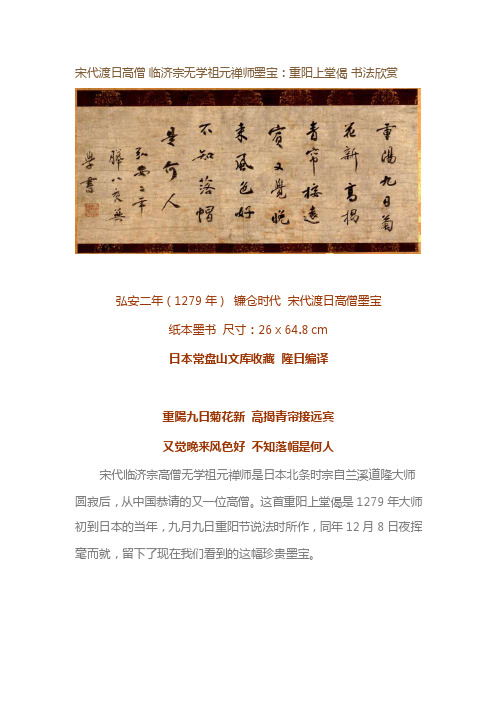 宋代渡日高僧 临济宗无学祖元禅师墨宝：重阳上堂偈 书法欣赏
重陽九日菊
花新高揭
青帘接遠
賓又覺晚
来風色好
不知落帽
是何人
弘安二年
臈八夜無
學書
弘安二年（1279 年） 镰仓时代 宋代渡日高僧墨宝
纸本墨书 尺寸：26 x 64.8 cm
日本常盘山文库收藏 隆日编译
重陽九日菊花新 高揭青帘接远宾
又觉晚来风色好 不知落帽是何人
宋代临济宗高僧无学祖元禅师是日本北条时宗自兰溪道隆大师
圆寂后，从中国恭请的又一位高僧。这首重阳上堂偈是 1279 年大师
初到日本的当年，九月九日重阳节说法时所作，同年 12 月 8 日夜挥
毫而就，留下了现在我们看到的这幅珍贵墨宝。